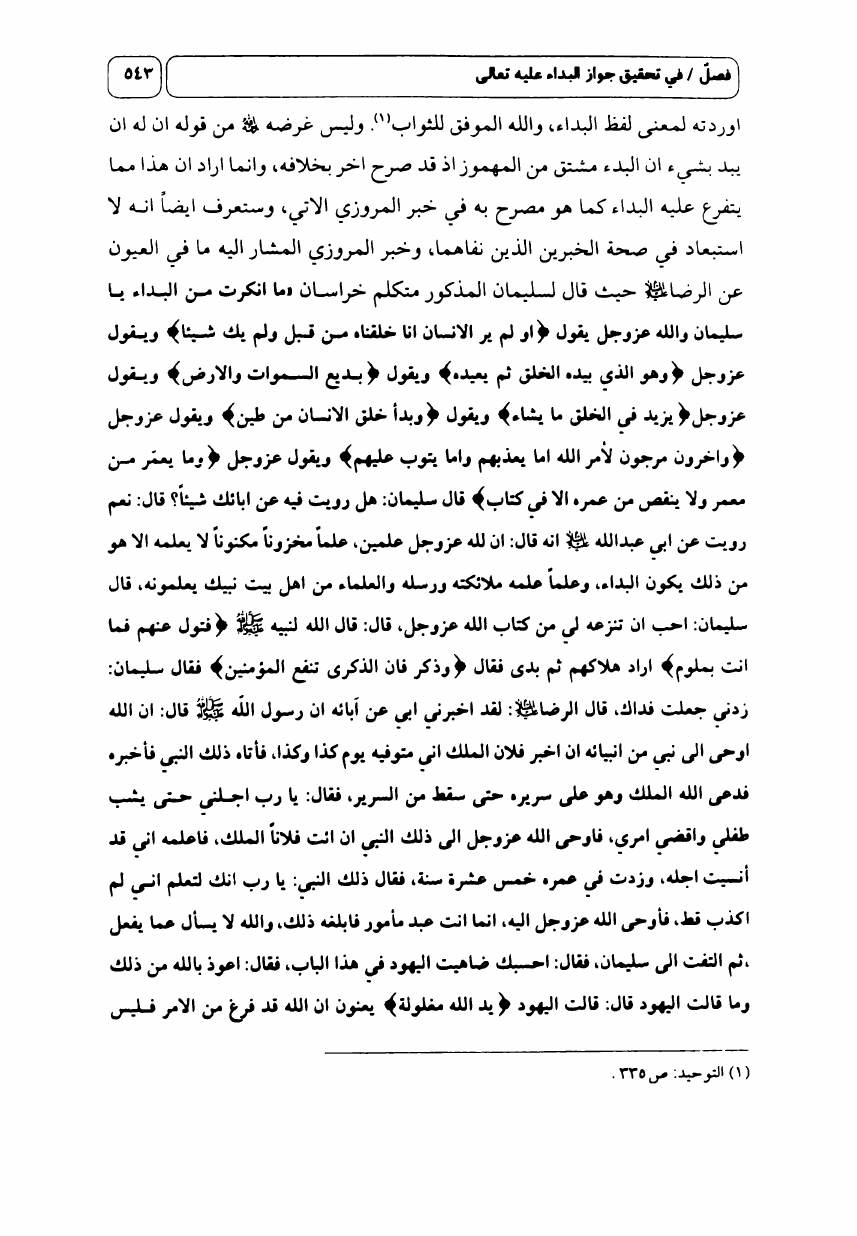 فصلّ / في تحقيق جواز البداء عليه تعالى ٥٤٣
اوردته لمعنى لفظ البداء، والله الموفق للثواب(١). وليس غرضه ﷫ من قوله ان له ان
يبد بشيء ان البدء مشتق من المهموز اذ قد صرح اخر بخلافه، وانما اراد ان هذا مما
يتفرع عليه البداء كما هو مصرح به في خبر المروزي الاتي، وستعرف ايضاً انه لا
استبعاد في صحة الخبرين الذين نفاهما، وخبر المروزي المشار اليه ما في العيون
عن الرضا عليه السلام حيث قال لسليمان المذكور متكلم خراسان «ما انكرت من البداء يا
سليمان والله عزوجل يقول ﴿او لم ير الانسان انا خلقناه من قبل ولم يك شيئا﴾ ويقول
عزوجل ﴿وهو الذي بيده الخلق ثم يعيده﴾ ويقول ﴿بديع السموات والارض﴾ ويقول
عزوجل﴿يزيد في الخلق ما يشاء﴾ ويقول ﴿وبدأ خلق الانسان من طين﴾ ويقول عزوجل
﴿واخرون مرجون لأمر الله اما يعذبهم واما يتوب عليهم﴾ ويقول عزوجل ﴿وما يعمّر من
معمر ولا ينقص من عمره الا في كتاب﴾ قال سليمان: هل رويت فيه عن ابائك شيئاً؟ قال: نعم
رويت عن ابي عبدالله عليه السلام انه قال: ان لله عزوجل علمين، علماً مخزوناً مكنوناً لا يعلمه الا هو
من ذلك يكون البداء، وعلماً علمه ملائكته ورسله والعلماء من اهل بيت نبيك يعلمونه، قال
سليمان: احب ان تنزعه لي من كتاب الله عزوجل، قال: قال الله لنبيه ﷺ ﴿فتول عنهم فما
انت بملوم﴾ اراد هلاكهم ثم بدى فقال ﴿وذكر فان الذكرى تنفع المؤمنين﴾ فقال سليمان:
زدني جعلت فداك، قال الرضا عليه السلام: لقد اخبرني ابي عن آبائه ان رسول اللّه ﷺ قال: ان الله
اوحى الى نبي من انبيائه ان اخبر فلان الملك اني متوفيه يوم كذا وكذا، فأتاه ذلك النبي فأخبره
فدعى الله الملك وهو على سريره حتى سقط من السرير، فقال: يا رب اجلني حتى يشب
طفلي واقضي امري، فاوحى الله عزوجل الى ذلك النبي ان ائت فلاناً الملك، فاعلمه اني قد
أنسيت اجله، وزدت في عمره خمس عشرة سنة، فقال ذلك النبي: يا رب انك لتعلم اني لم
اكذب قط، فأوحى الله عزوجل اليه، انما انت عبد مأمور فابلغه ذلك، والله لا يسأل عما يفعل
،ثم التفت الى سليمان، فقال: احسبك ضاهيت اليهود في هذا الباب، فقال: اعوذ بالله من ذلك
وما قالت اليهود قال: قالت اليهود ﴿يد الله مغلولة﴾ يعنون ان الله قد فرغ من الامر فليس
(١) التوحيد: ص ٣٣٥ .